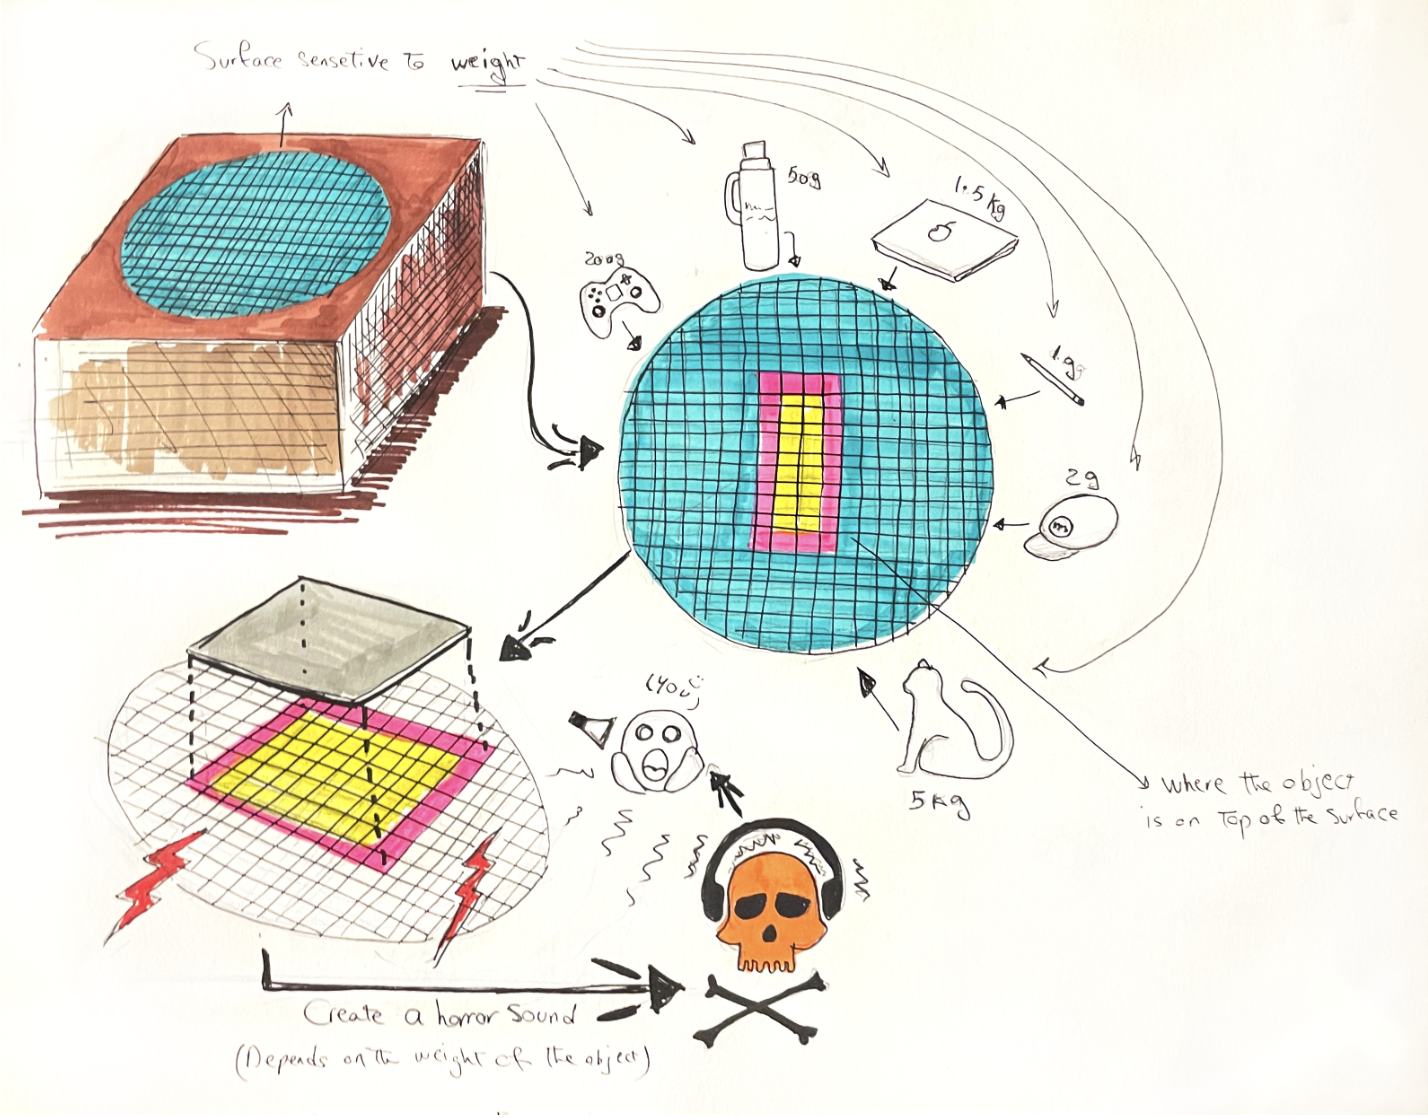 Surface sensetive to weight
50g
1.5 Kg
200g
1.9g
2g
m
(You)
5 Kg
where the object
is on Top of the surface
Create a horror sound
(Depends on the weight of the object)